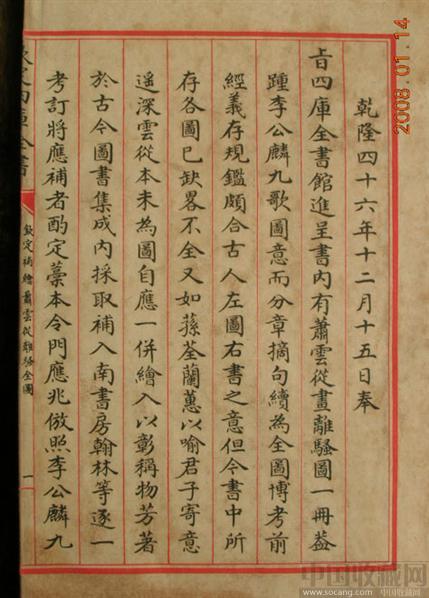 乾隆四十六年十二月十五日奉
旨四庫全書館進呈書内有蕭雲從畫離騷圖一冊葢
踵李公麟九歌圖意而分章摘句續為全圖博考前
經義存規鑑頗合古人左圖右書之意但今書中所
存各圖已缺畧不全又如蓀荃蘭蕙以喻君子寄意
遥深雲從本未為圖自應一併繪入以彰稱物芳著
於古今圖書集成内採取補入南書房翰林等逐一
考訂將應補者酌定藁本令門應兆倣照李公麟九
欽定四庫全書
欽定補繪蕭雲從離騷全圖
一
2008.01.14
中国收藏网
www.socang.com 中国收藏网